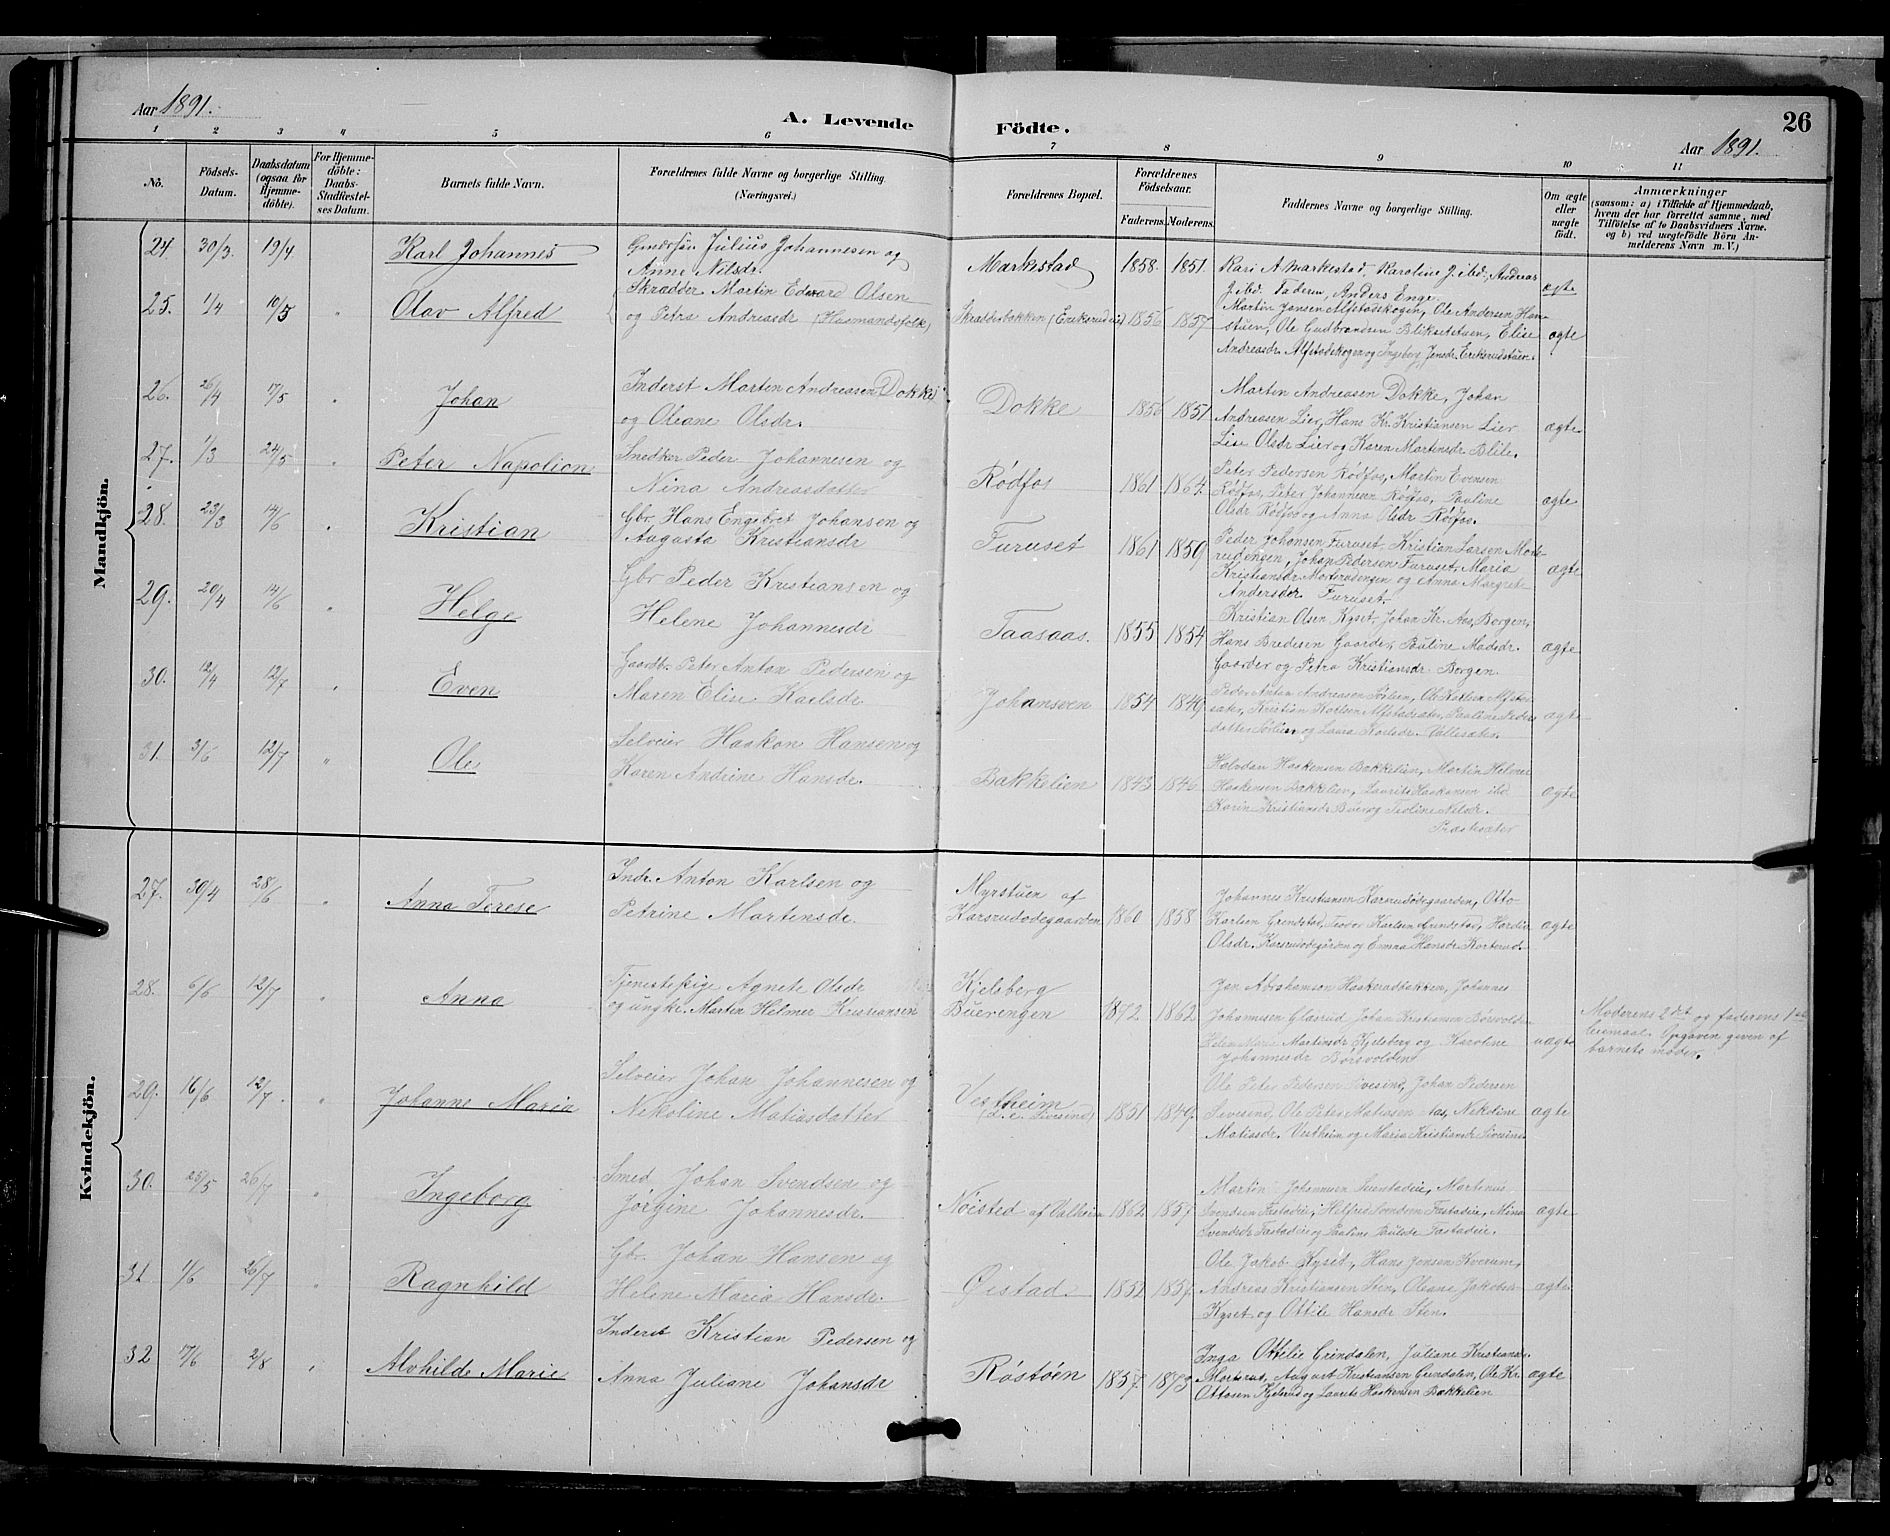 Aar 1891.
A. Levende
Födte.
26
Aar 1891.
1 2 3 4 5 6 7 8 9 10 11
No.
Födsels-
Datum.
Daabsdatum
(ogsaa for
Hjemme-
döbte).
For Hjemme-
döbte:
Daabs-
Stadfæstel-
ses Datum.
Barnets fulde Navn.
Forældrenes fulde Navne og borgerlige Stilling.
(Næringsvei.)
Forældrenes Bopæl.
Forældrenes
Födselsaar.
Faderens. Moderens.
Faddernes Navne og borgerlige Stilling.
Om ægte
eller
uægte
födt.
Anmærkninger
(saasom: a) i Tilfælde af Hjemmedaab,
hvem der har forrettet samme, med
Tilföielse af to Daabsvidners Navne.
og b) ved uægtefödte Börn An-
melderens Navn m. V.)
Mandkjön.
24. 30/3. 19/4 Karl Johannes
Julius Johannesen og
Anne Nilsdr.
Markestad 1858. 1851.
Kari A Markestad, Karoline J. ibd., Andreas
J. ibd. Faderen, Anders Enge.
ægte
25. 1/4 10/5 " Olav Alfred
Skrædder Martin Edvard Olsen
og Petra Andreasdr (Husmandsfolk)
Skræddebakken 1856 1857
Martin Jansen Alfstadskogen, Ole Andersen Hau-
stuen, Ole Gudbrandsen Elise
Andreasdr. Alfstadskogen og Ingeborg Jensdr. Eriksrudstuen.
ægte
26. 26/4 17/5 " Johan
Inderst Martin Andreasen Dokke
og Oleane Olsdr.
Dokke 1856 1851
Martin Andreasen Dokke, Johan
Andreasen Lier, Hans Kr. Kristiansen Lier
Lise Olsdr Lier og Karen Martinsdr Blile.
ægte
27. 1/3 24/5 " Peter Napolion
Snedker Peder Johannesen og
Nina Andreasdatter
Rødfos 1861 1864.
Peter Pedersen Rødfos, Martin Evensen
Rødfos, Peter Johannesen Rødfos, Pauline
Olsdr Rødfos og Anna Olsdr Rødfos.
ægte
28. 23/3 14/6 " Kristian
Gbr. Hans Engebret Johansen og
Augusta Kristiansdr
Furuset 1861 1859
Peder Johansen Furuset, Kristian Larsen Mort-
rudengen, Johan Pedersen Furuset, Maria
Kristiansdr Morterudengen og Anna Margrete
Andersdr Furuset.
ægte
29. 20/4 14/6 " Helge
Gbr Peder Kristiansen og
Helene Johannesdr
Taasaas. 1855 1854
Kristian Olsen Kyset, Johan Kr. Aas Borgen,
Hans Bredesen Gaarder, Pauline Madsdr.
Gaarder og Petra Kristiansdr Borgen.
ægte
30. 12/4 12/7 " Even
Gaardbr. Peter Anton Pedersen og
Maren Elise Karlsdr.
Johansven 1854 1849
Peder Anton Andreasen Sölien, Ole Karlsen Alfstad-
sæter, Kristian Karlsen Alfstadsæter, Pauline Peders
datter Sölien og Laura Karlsdr.
ægte
31. 3/6 12/7 " Ole
Selveier Haakon Hansen og
Karen Andrine Hansdr.
Bakkelien 1843 1846
Halvdan Haakensen Bakkelien, Martin Helmer
Haakensen Bakkelien, Laurits Haakensen ibd
Karin Kristiansdr Bue og Nilsdr
Præstesæter
ægte
Kvindekjön.
27. 30/4 28/6 " Anna Terese
Indr. Anton Karlsen og
Petrine Martinsdr.
Myrstuen af
Karsrudødegaarden 1860 1858
Johannes Kristiansen Karsrudødegaarden, Otto
Karlsen Grindstad, Karlsen Grindstad,
Olsdr. Karsrudødegården og Emma Hansdr Korterud.
ægte
28. 6/6 12/7 " Anna
Tjenestepige Agnete Olsdr
og ungkr. Martin Helmer Kristiansen
Kjelsberg
Buerengen 1872. 1862
Jan Abrahamsen Haskerudbakken, Johannes
Johannesen Glæsrud, Johan Kristiansen Børsvolden
Marie Martinsdr Kjelsberg og Karoline
Johannesdr Børsvolden
uægte
Moderens 2det og faderens 1ste
leiermaal. Opgaven given af
barnets moder.
29. 16/6 12/7. " Johanne Maria
Selveier Johan Johannesen og
Nekoline Matiasdatter
Vestheim
(d.e. Sivesind) 1851. 1849.
Ole Peter Pedersen Sivesind, Johan Pedersen
Sivesind, Ole Peter Matiasen Aas, Nekoline
Matiasdr. Vestheim og Maria Kristiansdr Sivesind
ægte
30. 25/5 26/7 " Ingeborg
Smed Johan Svendsen og
Jørgine Johannesdr.
Nøisted af Valheim 1862 1857.
Martin Johannesen Martinus
Svendsen Fastadeie, Svendsen Fastadeie, Mina
Svendsdr Fastadeie og Pauline Paulsdr Fastadeie.
ægte
31 1/6 26/7 " Ragnhild
Gbr. Johan Hansen og
Helene Maria Hansdr.
Øistad. 1851 1857.
Ole Jakob. Kyset, Hans Jensen Kverum,
Andreas Kristiansen Sten, Oleane Jakobsdr
Kyset og Ottili Hansdr Sten.
ægte
32 7/6 2/8 " Alvhilde Marie
Inderst Kristian Pedersen og
Anna Juliane Johansdr
Røstøen 1857. 1873.
Inga Ottilie Grindalen, Juliane Kristiansdr.
Morterud, August Kristiansen Grindalen, Ole Kr.
Ottosen Kjelsrud og Laurits Haakensen Bakkelien
ægte